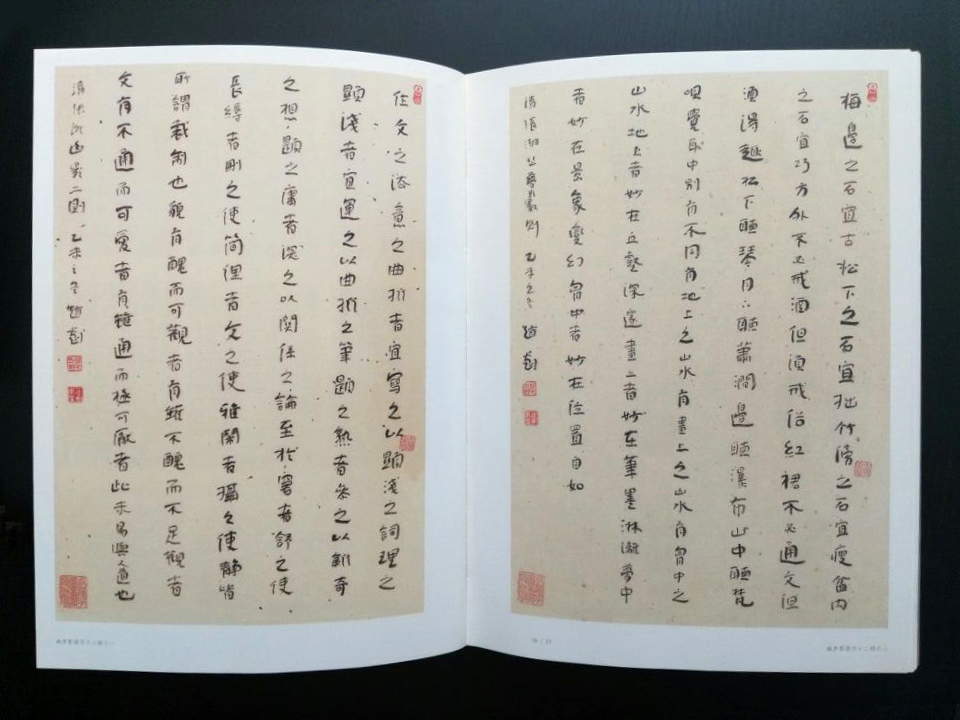 梅邊之石宜古松下之石宜拙竹傍之石宜瘦盆内
之石宜巧方外不必戒酒但須戒俗紅裙不必通文但
須得趣松下聽琴月下聽蕭澗邊聽瀑布山中聽梵
唄覺耳中別有不同有地上之山水有畫上之山水有胷中之
山水地上者妙在丘壑深邃畫上者妙在筆墨淋漓夢中
者妙在景象變幻胷中者妙在位置自如
清張潮幽夢影數則 乙未之冬
作文之法意之曲折者宜寫之以顯淺之詞理之
顯淺者宜運之以曲折之筆題之熟者參之以新奇
之想題之庸者深之以関係之論至於窘者舒之使
長縟者刪之使簡俚者文之使雅鬧者攝之使靜皆
所謂裁制也貌有醜而可觀者有雖不醜而不足觀者
文有不通而可愛者有雖通而極可厭者此未易與人道也
清張潮幽夢影二則 乙未之冬